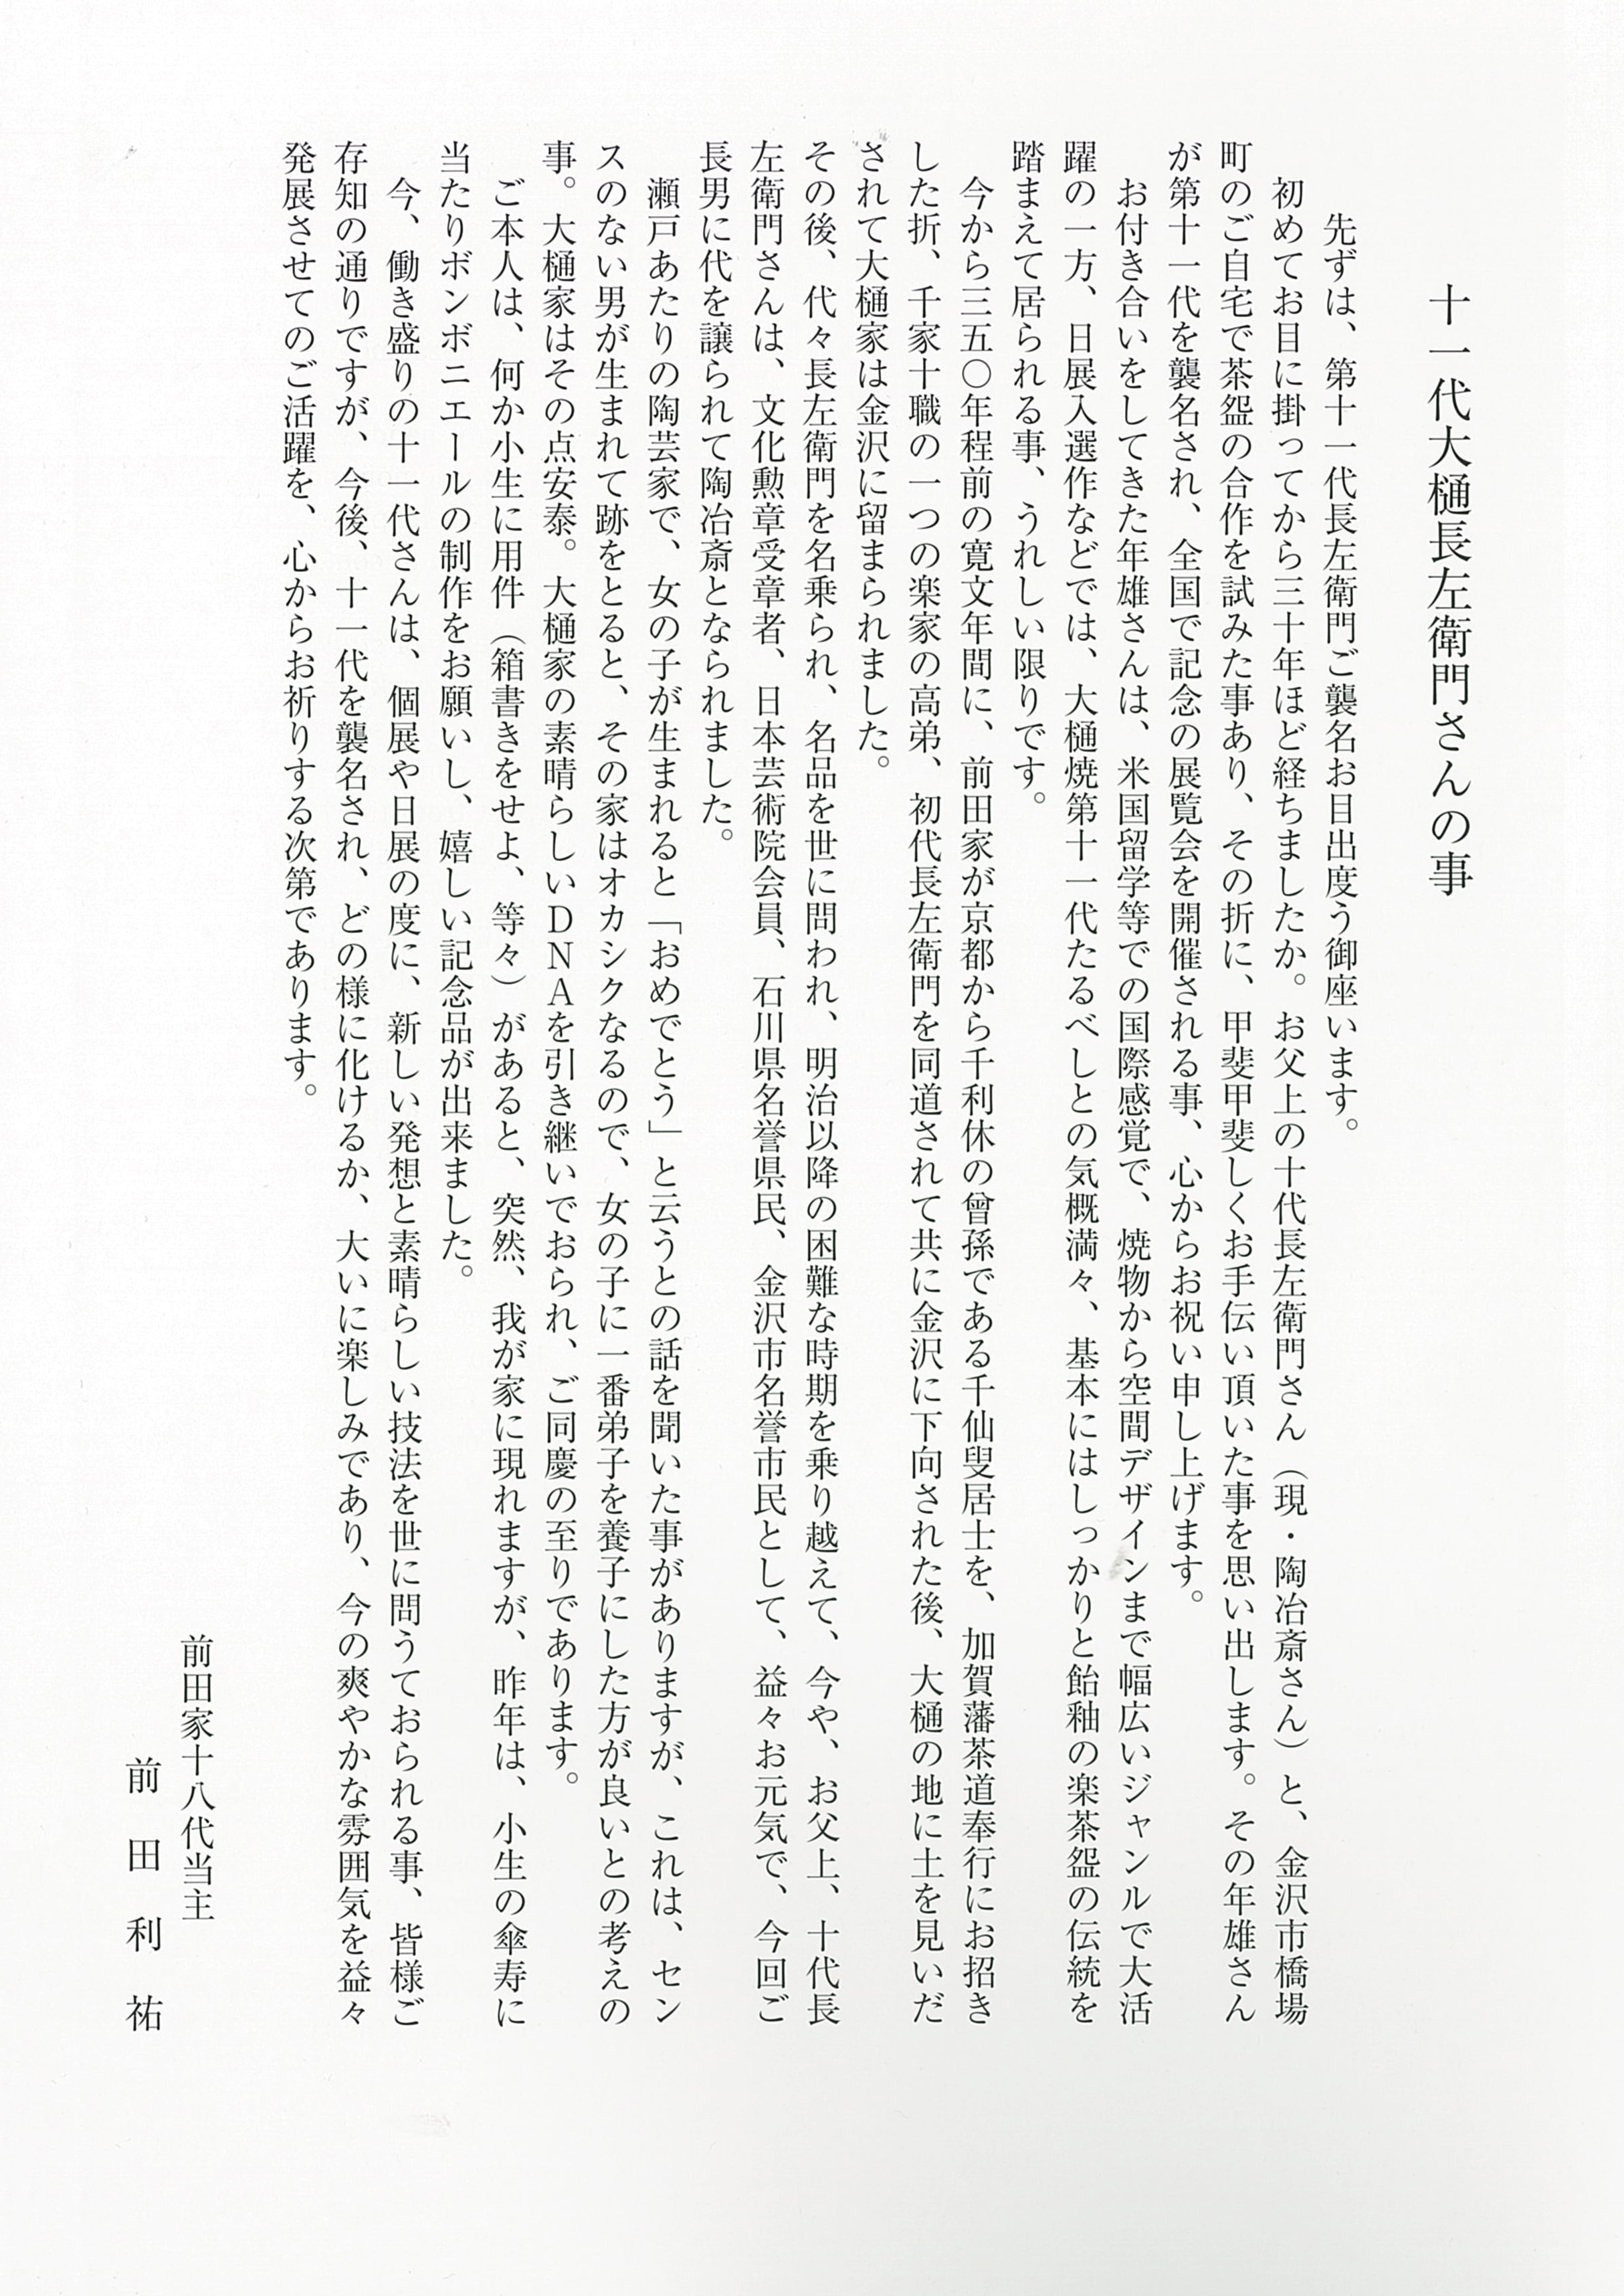 十一代大樋長左衛門さんの事
先ずは、第十一代長左衛門ご襲名お目出度う御座います。
初めてお目に掛ってから三十年ほど経ちましたか。お父上の十代長左衛門さん（現・陶冶斎さん）と、金沢市橋場
町のご自宅で茶盌の合作を試みた事あり、その折に、甲斐甲斐しくお手伝い頂いた事を思い出します。その年雄さん
が第十一代を襲名され、全国で記念の展覧会を開催される事、心からお祝い申し上げます。
お付き合いをしてきた年雄さんは、米国留学等での国際感覚で、焼物から空間デザインまで幅広いジャンルで大活
躍の一方、日展入選作などでは、大樋焼第十一代たるべしとの気概満々、基本にはしっかりと飴釉の楽茶盌の伝統を
踏まえて居られる事、うれしい限りです。
今から三五〇年程前の寛文年間に、前田家が京都から千利休の曾孫である千仙叟居士を、加賀藩茶道奉行にお招き
した折、千家十職の一つの楽家の高弟、初代長左衛門を同道されて共に金沢に下向された後、大樋の地に土を見いだ
されて大樋家は金沢に留まられました。
その後、代々長左衛門を名乗られ、名品を世に問われ、明治以降の困難な時期を乗り越えて、今や、お父上、十代長
左衛門さんは、文化勲章受章者、日本芸術院会員、石川県名誉県民、金沢市名誉市民として、益々お元気で、今回ご
長男に代を譲られて陶冶斎となられました。
瀬戸あたりの陶芸家で、女の子が生まれると「おめでとう」と云うとの話を聞いた事がありますが、これは、セン
スのない男が生まれて跡をとると、その家はオカシクなるので、女の子に一番弟子を養子にした方が良いとの考えの
事。大樋家はその点安泰。大樋家の素晴らしいＤＮＡを引き継いでおられ、ご同慶の至りであります。
ご本人は、何か小生に用件（箱書きをせよ、等々）があると、突然、我が家に現れますが、昨年は、小生の傘寿に
当たりボンボニエールの制作をお願いし、嬉しい記念品が出来ました。
今、働き盛りの十一代さんは、個展や日展の度に、新しい発想と素晴らしい技法を世に問うておられる事、皆様ご
存知の通りですが、今後、十一代を襲名され、どの様に化けるか、大いに楽しみであり、今の爽やかな雰囲気を益々
発展させてのご活躍を、心からお祈りする次第であります。
前田家十八代当主
前田利祐